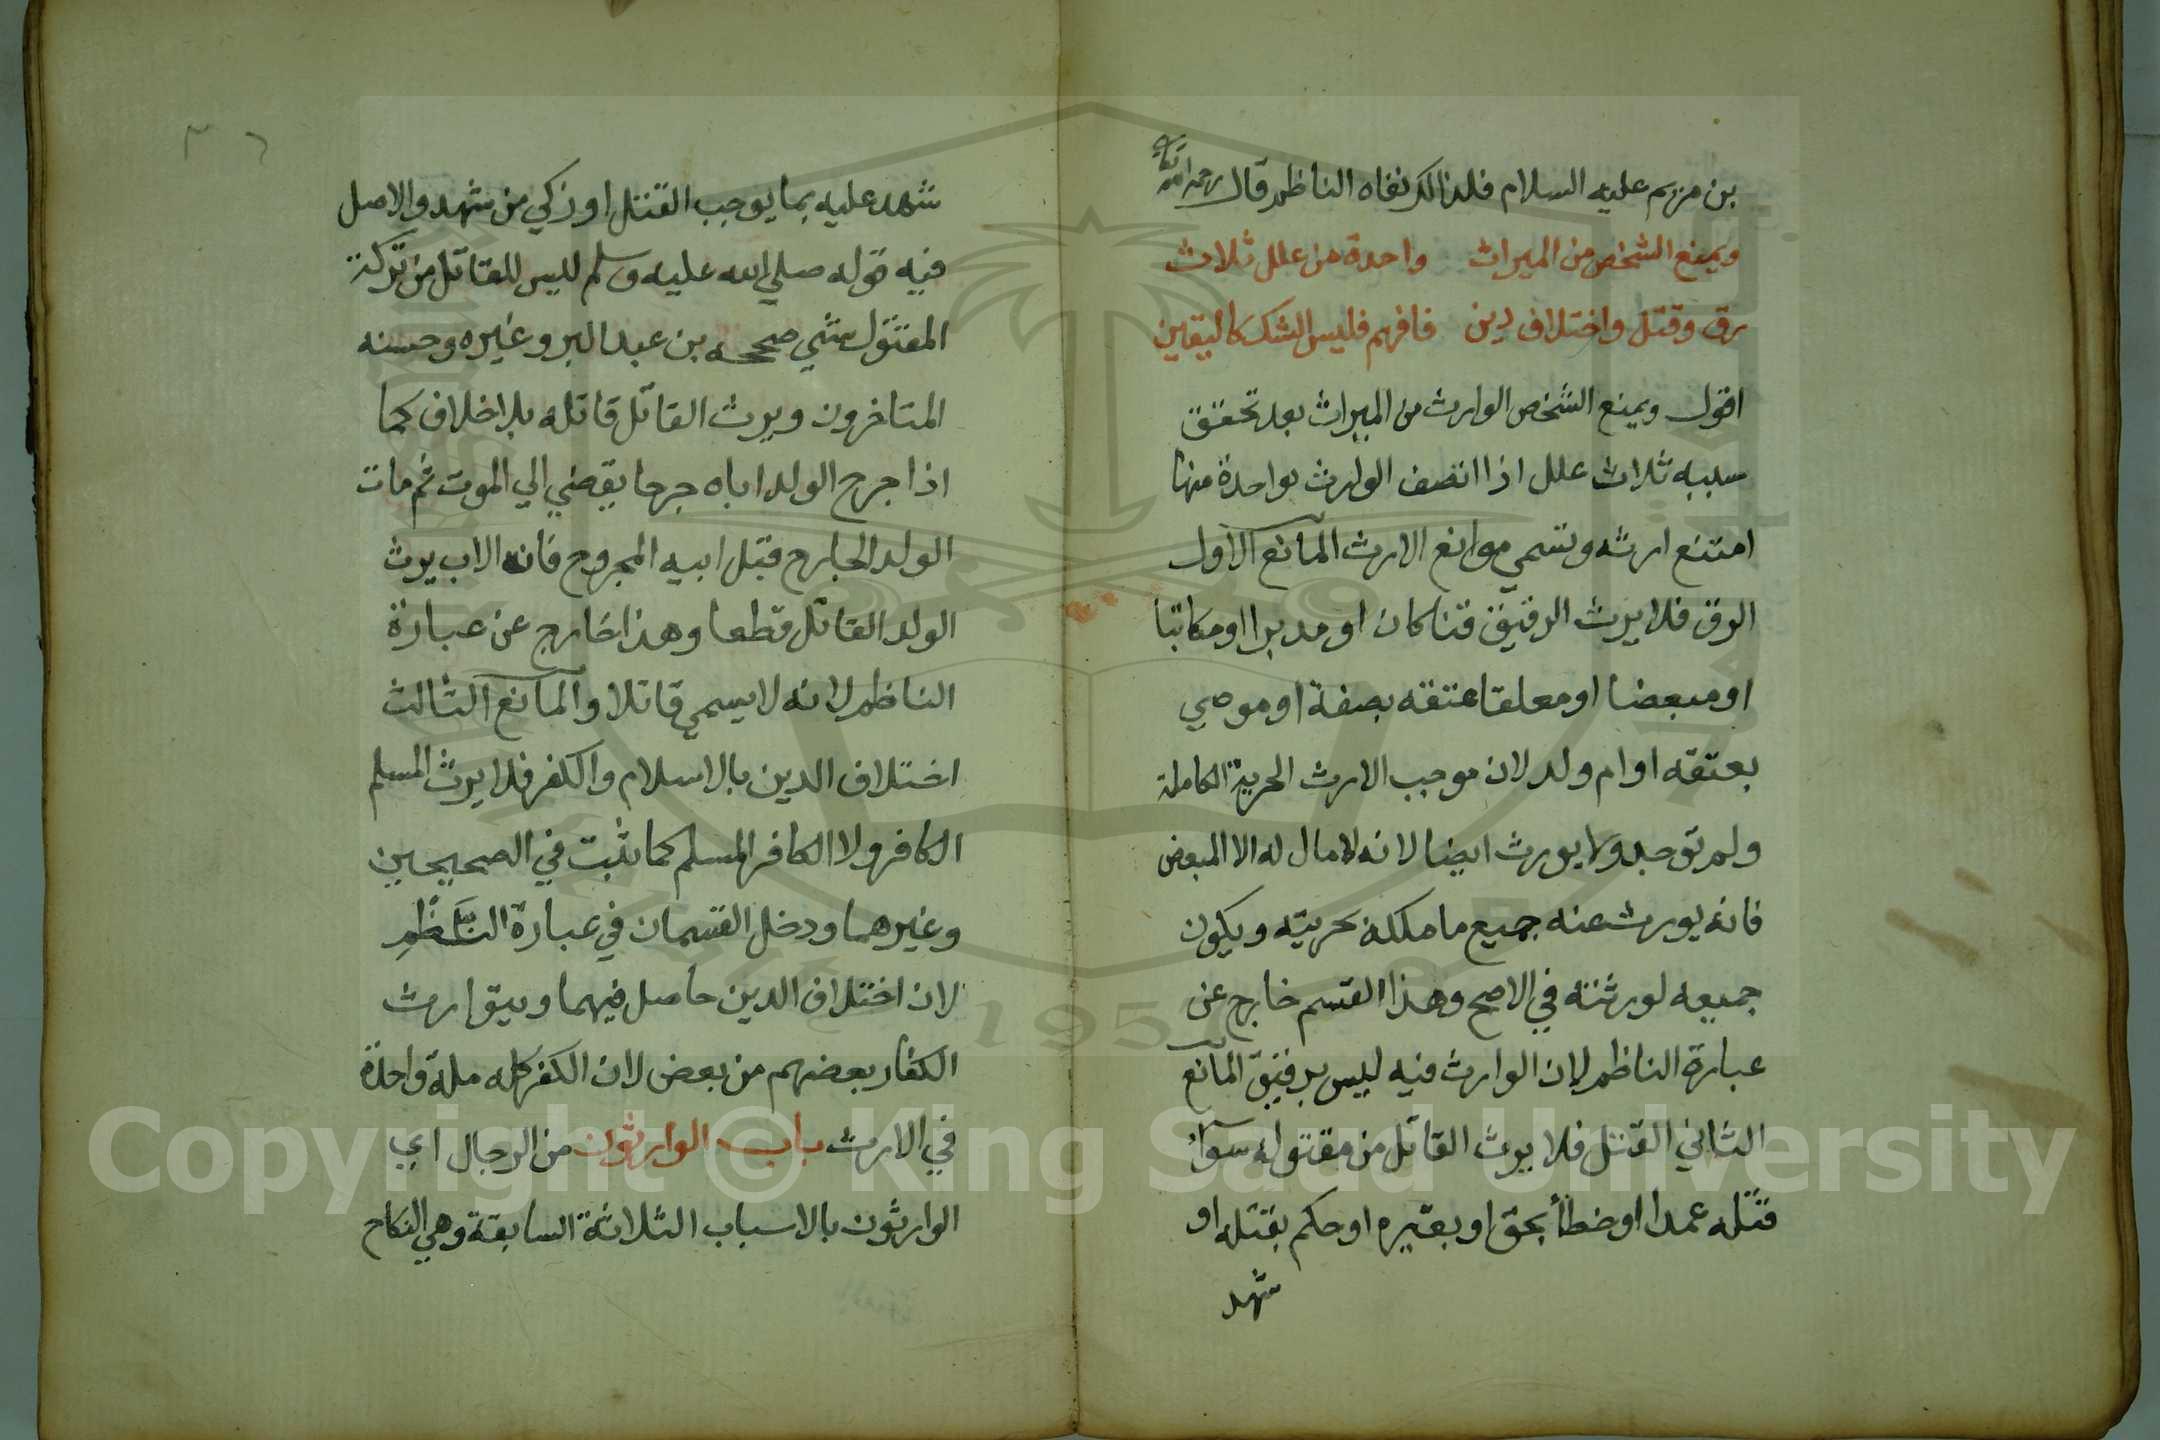 بن مريم عليه السلام فلذالك نفاه الناظم قال رحمه الله تعالى
ويمنع الشخص من الميراث واحدة من علل ثلاث
رق وقتل واختلاف دين فافهم فليس الشك كاليقين
اقول ويمنع الشخص الوارث من الميراث بعد تحقق
سببه ثلاث علل اذا اتصف الوارث بواحدة منها
امتنع ارثه وتسمي موانع الارث المانع الاول
الرق فلا يرث الرقيق قنا كان او مدبرا او مكاتبا
او مبعضا او معلقا عتقه بصفة او موصي
بعتقه او ام ولد لان موجب الارث الحرية الكاملة
ولم توجد ولا يورث ايضا لانه لا مال له الا المبعض
فانه يورث عنه جميع ما ملكه بحريته ويكون
جميعه لورثته في الاصح وهذا القسم خارج عن
عبارة الناظم لان الوارث فيه ليس برقيق المانع
الثاني القتل فلا يرث القاتل من مقتوله سوآء
قتله عمدا او خطأ بحق او بغيره او حكم بقتله او
شهد
٣٦
شهد عليه بما يوجب القتل او زكي من شهد والاصل
فيه قوله صلي الله عليه وسلم ليس للقاتل من تركة
المقتول شي صححه بن عبد البر وغيره وحسنه
المتاخرون ويرث القاتل قاتله بلا خلاف كما
اذا جرح الولد اباه جرحا يقضي الي الموت ثم مات
الولد الجارح قبل ابيه المجروح فانه الاب يرث
الولد القاتل قطعا وهذا خارج عن عبارة
الناظم لانه لا يسمي قاتلا والمانع الثالث
اختلاف الدين بالاسلام والكفر فلا يرث المسلم
الكافر ولا الكافر المسلم كما ثبت في الصحيحين
وغيرهما ودخل القسمان في عبارة الناظم
لان اختلاف الدين حاصل فيهما وبيق ارث
الكفار بعضهم من بعض لان الكفر كله ملة واحدة
في الارث باب الوارثون من الرجال اي
الوارثون بالاسباب الثلاثة السابقة وهي النكاح
Copyright © King Saud University
1957